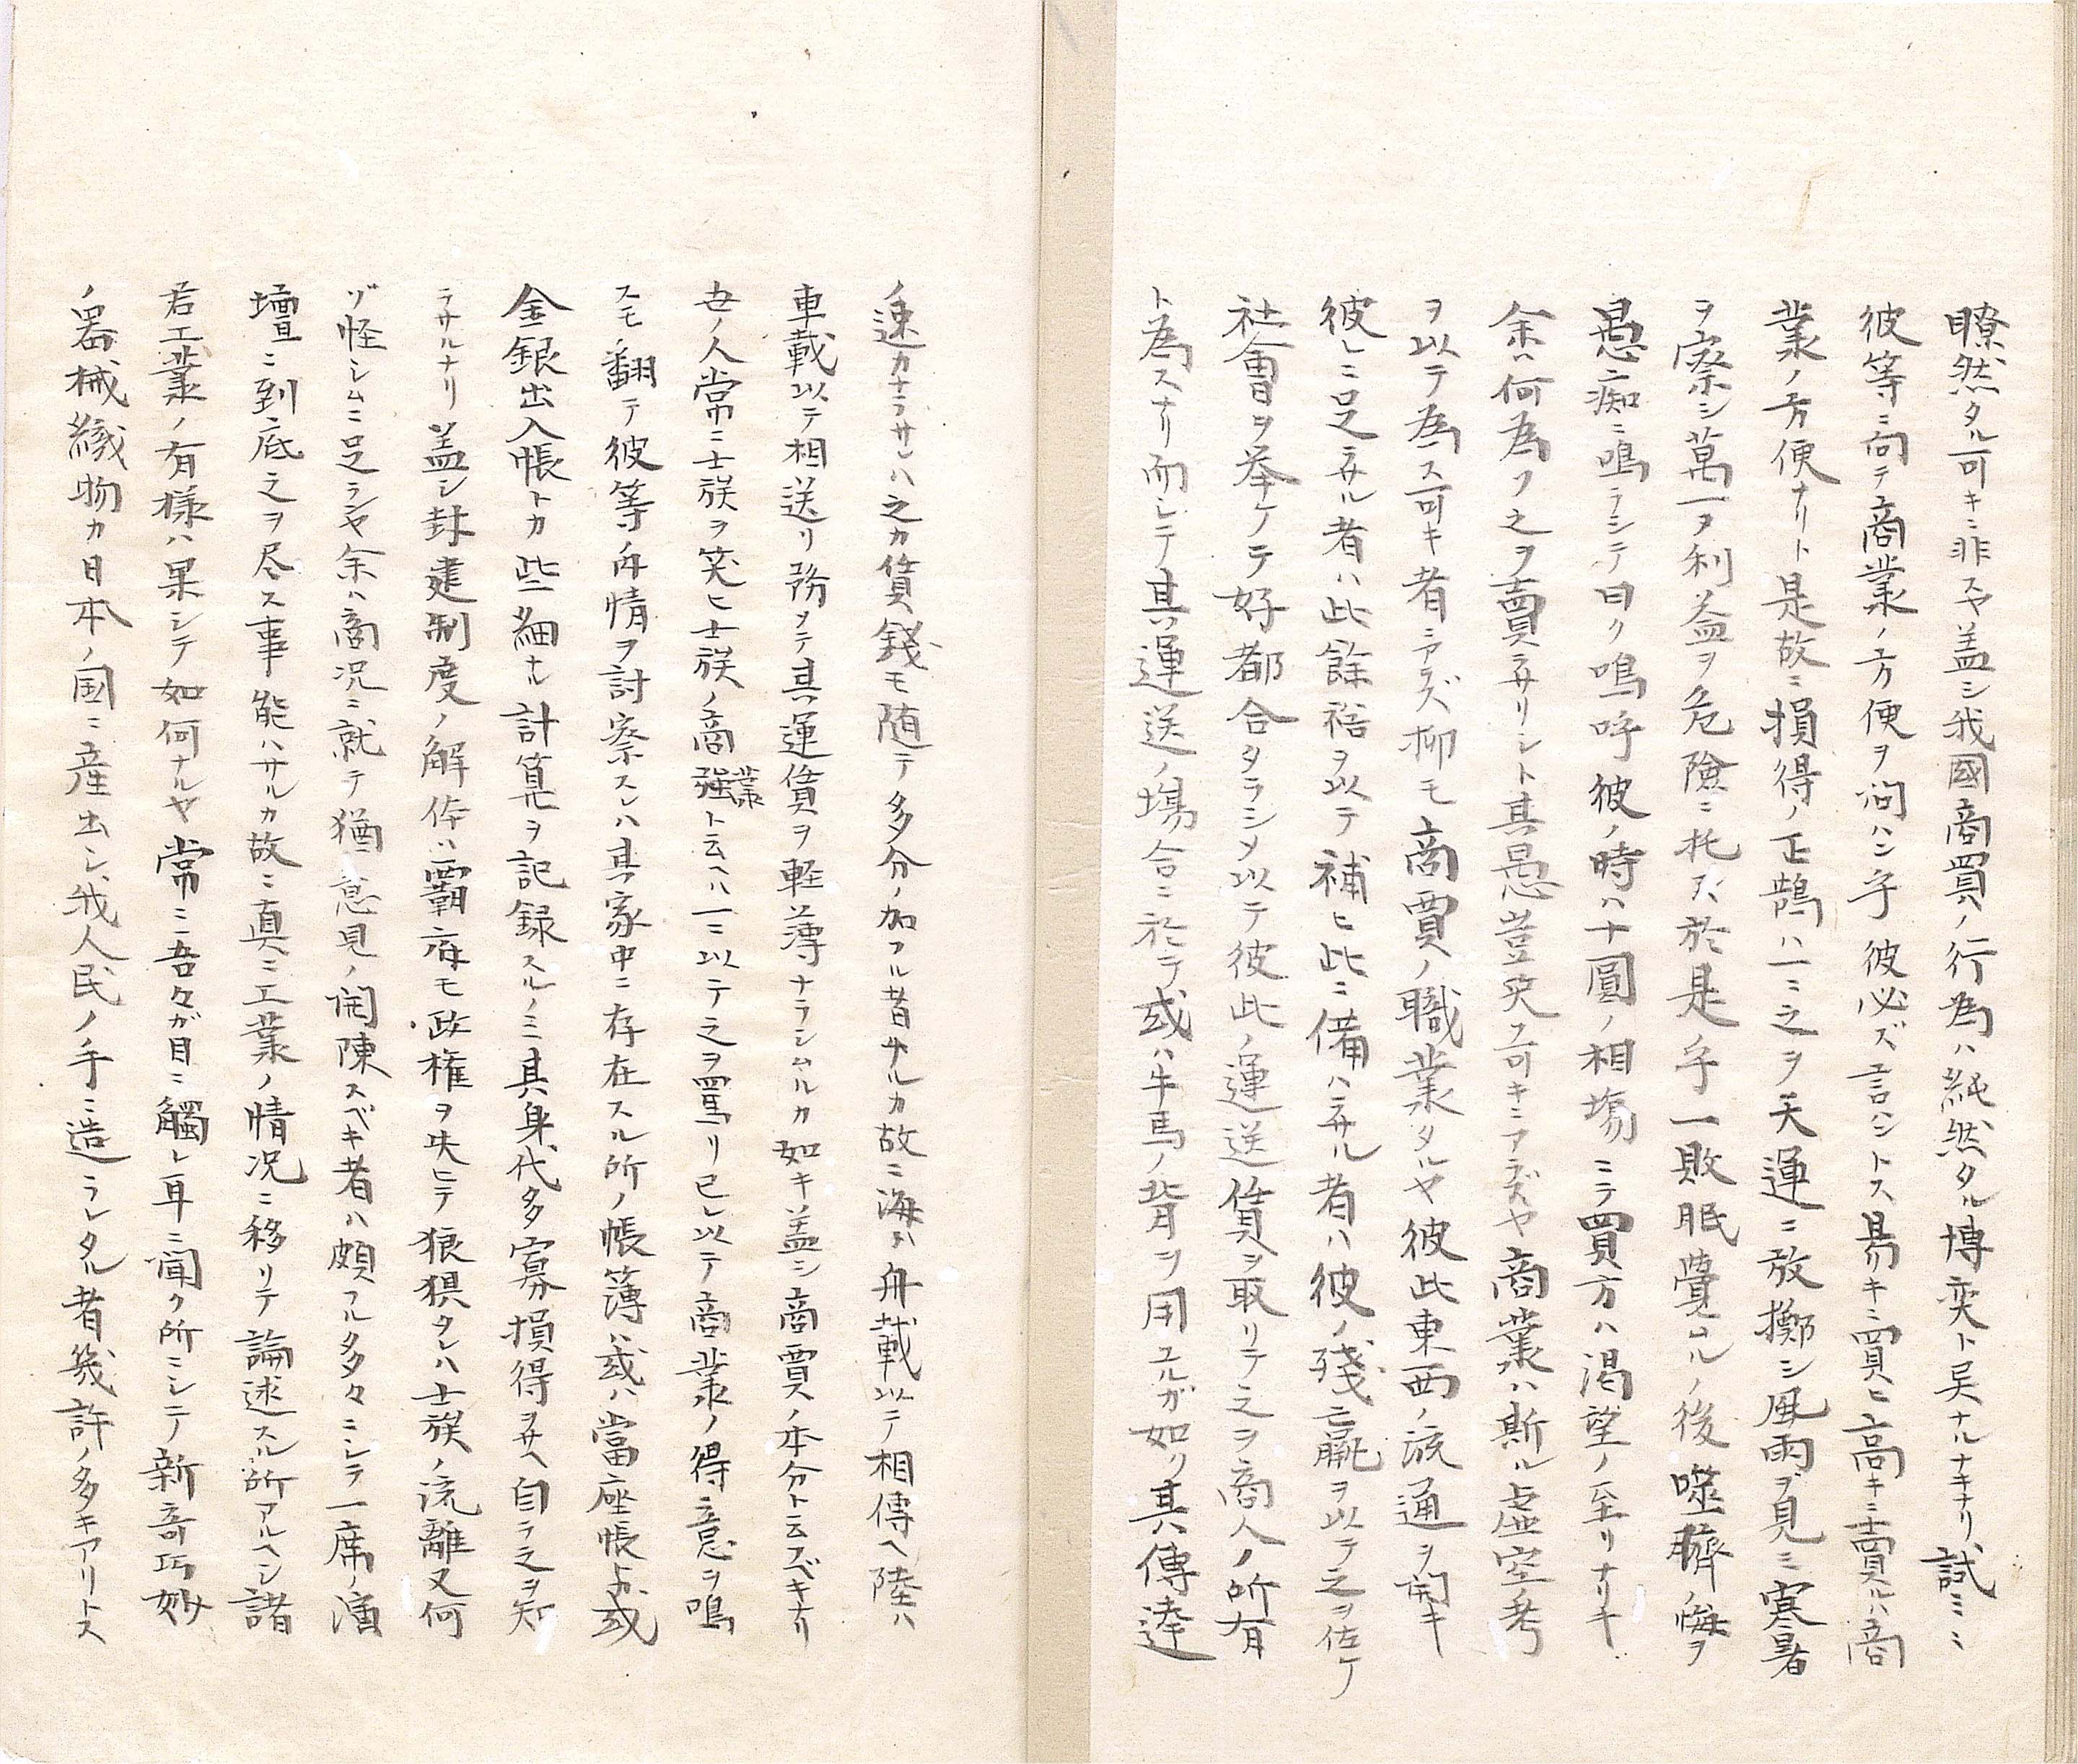 瞭然タル可キニ非スヤ蓋シ我國商買ノ行為ハ純然タル博奕ト異ナルナキナリ、試ミニ
彼等ニ向テ商業ノ方便ヲ問ハン乎彼必ズ言ハントス易キニ買ヒ高キニ賣ルハ商
業ノ方便ナリト是故ニ損得ノ正鵠ハ一ニ之ヲ天運ニ放擲シ風雨ヲ見ミ寒暑
ヲ察シ萬一ノ利益ヲ危険ニ托ス於是乎一敗眠覺ルノ後噬臍ノ悔ヲ
愚痴ニ鳴ラシテ曰ク嗚呼彼ノ時ハ十圓ノ相塲ニテ買方ハ渇望ノ至リナリキ
余ハ何為ソ之ヲ賣ラサリシト其愚豈笑フ可キニアラズヤ商業ハ斯ル虚空考
ヲ以テ為ス可キ者ニアラズ抑モ商賈ノ職業タルヤ彼此東西ノ流通ヲ開キ
彼レニ足ラサル者ハ此餘裕ヲ以テ補ヒ此ニ備ハラサル者ハ彼ノ残羸ヲ以テ之ヲ佐ケ
社會ヲ挙ケテ好都合タラシメ以テ彼此ノ運送賃ヲ取リテ之ヲ商人ノ所有
ト為スナリ而シテ其運送ノ塲合ニ於テ或ハ牛馬ノ背ヲ用ユルガ如リ其傳達
ノ速カナラサレハ之カ賃錢モ随テ多分ノ加フル者サルカ故ニ海ハ舟載以テ相傳ヘ陸ハ
車載以テ相送リ務メテ其運賃ヲ軽薄ナラシムルカ如キ蓋シ商賈ノ本分ト云フベキナリ
世ノ人常ニ士族ヲ笑ヒ士族ノ商業ト云ヘハ一ニ以テ之ヲ罵リ已レ以テ商業ノ得意ヲ鳴
スモ翻テ彼等ノ舟情ヲ討察スレハ其家中ニ存在スル所ノ帳簿ハ或ハ當座帳ト或
金銀出入帳トカ些細ナル計算ヲ記録スルノミ具身代多寡損得ヲサヘ自ラ之ヲ知
ラサルナリ蓋シ封建制度ノ解体ハ覇府モ政権ヲ失ヒテ狼狽タレハ士族ノ流離又何
ゾ怪シムニ足ランヤ余ハ商況ニ就テ猶意見ノ開陳スベキ者ハ頗フル多々ニシテ一席ノ演
壇ニ到底之ヲ尽ス事能ハサルカ故ニ真ニ工業ノ情況ニ移リテ論述スル所アルヘシ諸
君工業ノ有様ハ果シテ如何ナルヤ常ニ吾々ガ目ニ觸レ耳ニ聞ク所ニシテ新奇巧妙
ノ器械織物カ日本ノ国ニ産出シ、我人民ノ手ニ造ラレタル者幾許ノ多キアリトス